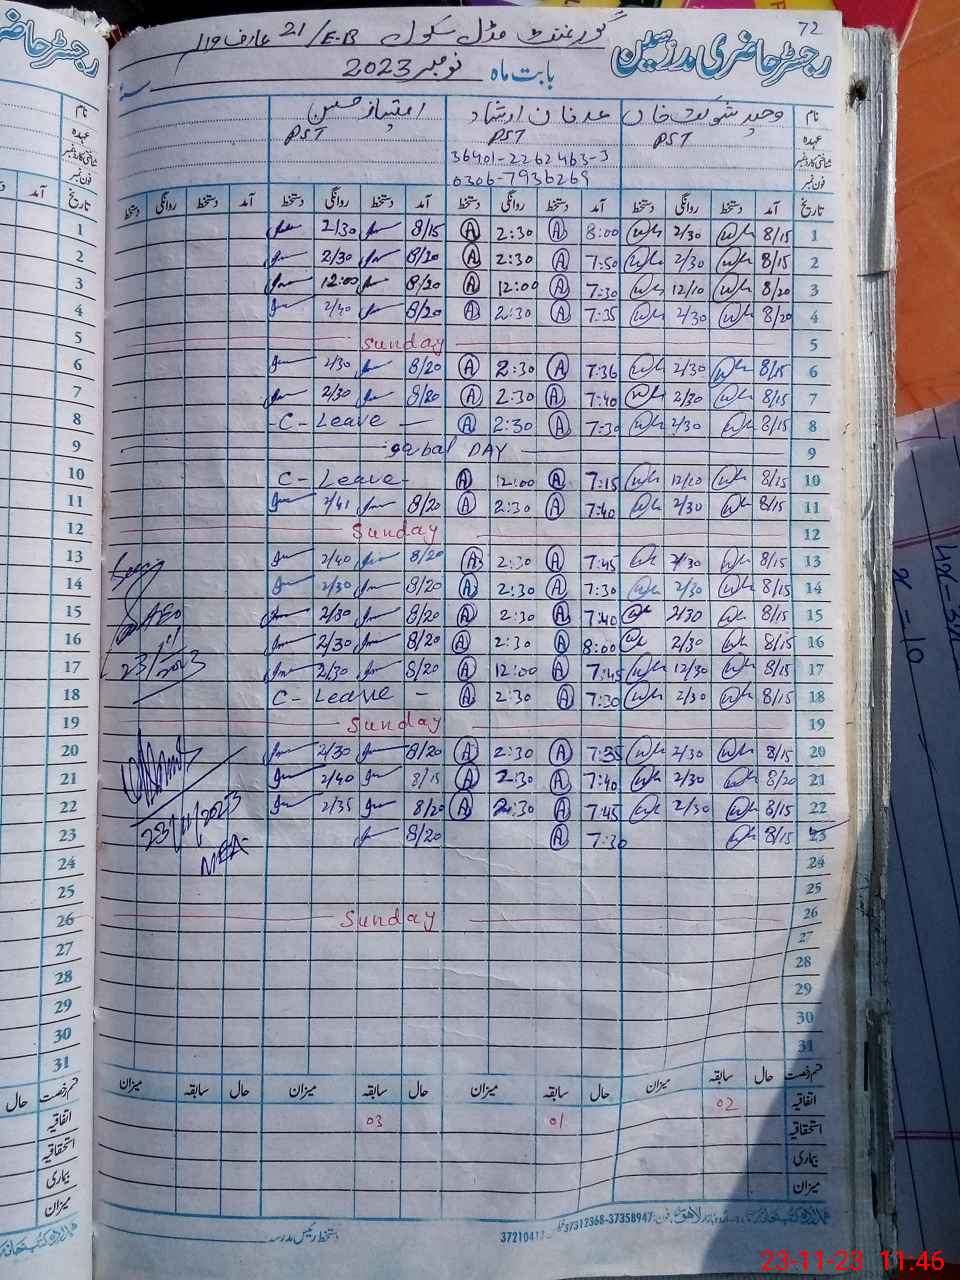 72
گورنمنٹ مڈل سکول 21/E-B عارف والا
رجسٹر حاضری مدرسین
بابت ماہ نومبر 2023 سنہ
نام وحید شوکت خان عدنان ارشاد امتیاز حسین
عہدہ PST PST PST
شناختی کارڈ نمبر 36401-2262463-3
فون نمبر 0306-7936269
تاریخ آمد دستخط روانگی دستخط آمد دستخط روانگی دستخط آمد دستخط روانگی دستخط آمد دستخط روانگی دستخط
1 8/15 2/30 8:00 A 2:30 A 8/15 2/30
2 8/15 2/30 7:50 A 2:30 A 8/20 2/30
3 8/20 12/10 7:30 A 12:00 A 8/20 12:00
4 8/20 2/30 7:35 A 2:30 A 8/20 2/40
5 Sunday
6 8/15 2/30 7:36 A 2:30 A 8/20 2/30
7 8/15 2/30 7:40 A 2:30 A 8/20 2/30
8 8/15 2/30 7:30 A 2:30 A C-Leave
9 iqabal DAY
10 8/15 12/10 7:15 A 12:00 A C-Leave
11 8/15 2/30 7:40 A 2:30 A 8/20 2/41
12 Sunday
13 8/15 2/30 7:45 A 2:30 A 8/20 2/40
14 8/15 2/30 7:30 A 2:30 A 8/20 2/30
15 8/15 2/30 7:40 A 2:30 A 8/20 2/30
16 8/15 2/30 8:00 A 2:30 A 8/20 2/30
17 8/15 12/30 7:45 A 12:00 A 8/20 2/30
18 8/15 2/30 7:30 A 2:30 A C-Leave
19 Sunday
20 8/15 2/30 7:35 A 2:30 A 8/20 2/30
21 8/20 2/30 7:40 A 2:30 A 8/15 2/40
22 8/15 2/30 7:45 A 2:30 A 8/20 2/35
23 8/15 7:30 A 8/20
24
25
26 Sunday
27
28
29
30
31
AEO
23/11/2023
23/11/2023
MEA
قسم رخصت حال سابقہ میزان حال سابقہ میزان حال سابقہ میزان حال سابقہ میزان
اتفاقیہ 02 01 03
استحقاقیہ
بیماری
میزان
دستخط رئیس مدرسہ
37312368-37358947
23-11-23 11:46